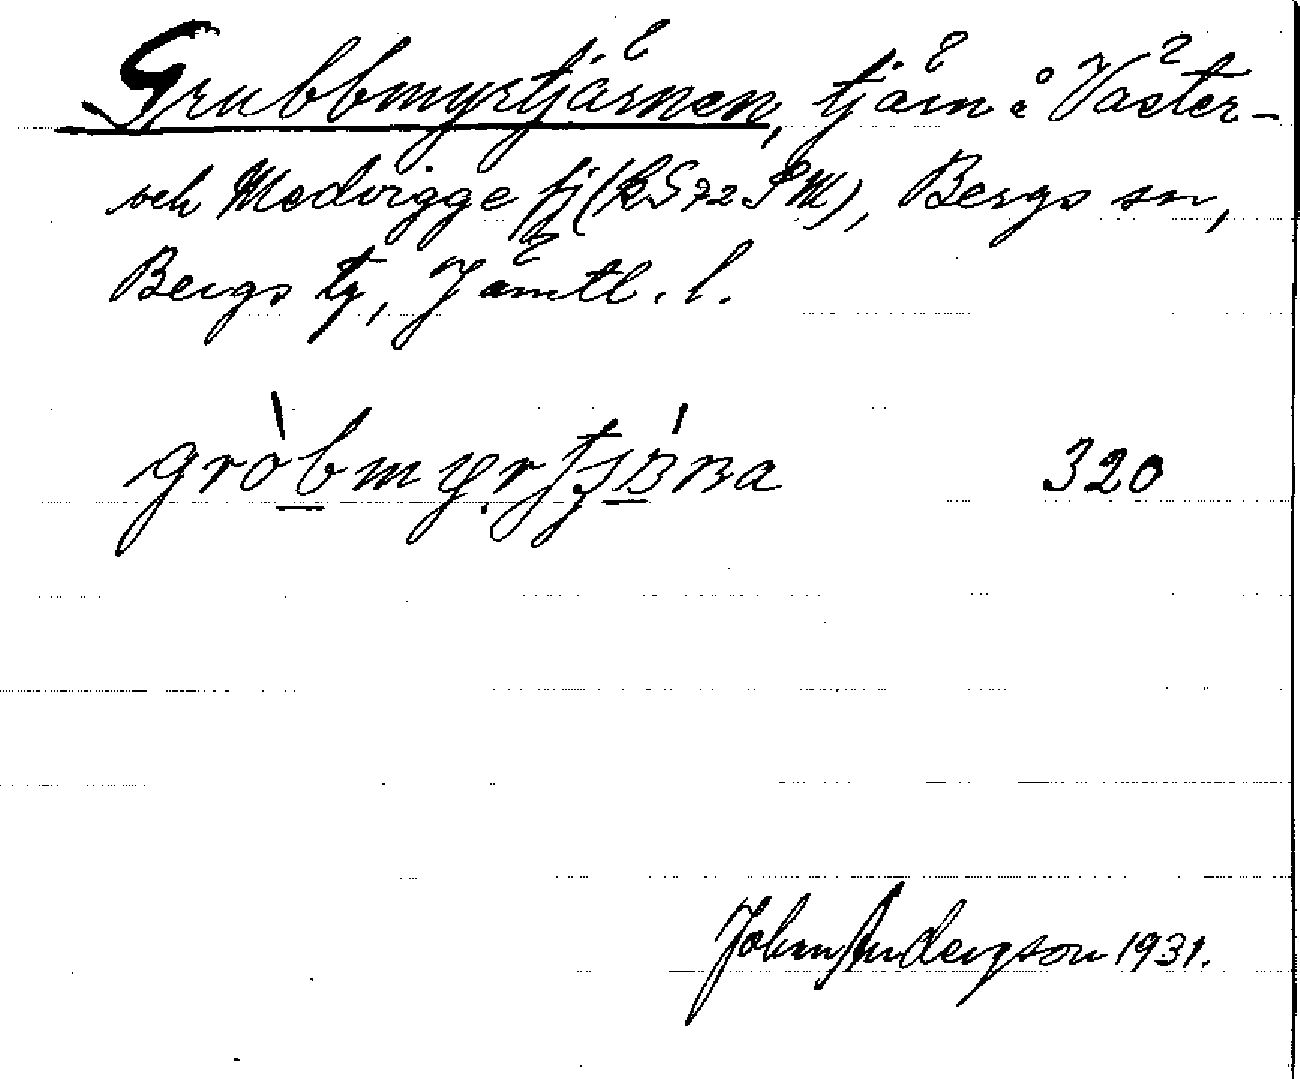 Grubbmyrtjärnen, tjärn i Väster-
och Medvigge fj (kS72SM), Bergs sn,
Bergs tg, Jämtl. l.
320
John Andersson 1931.